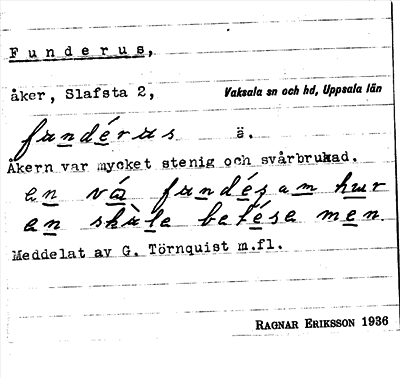 Funderus,
åker, Slafsta 2, Vaksala sn och hd, Uppsala län
fundérus ä.
Åkern var mycket stenig och svårbrukad.
en vá fundésam hur
an skùla betésa men
Meddelat av G. Törnquist m.fl.
RAGNAR ERIKSSON 1936